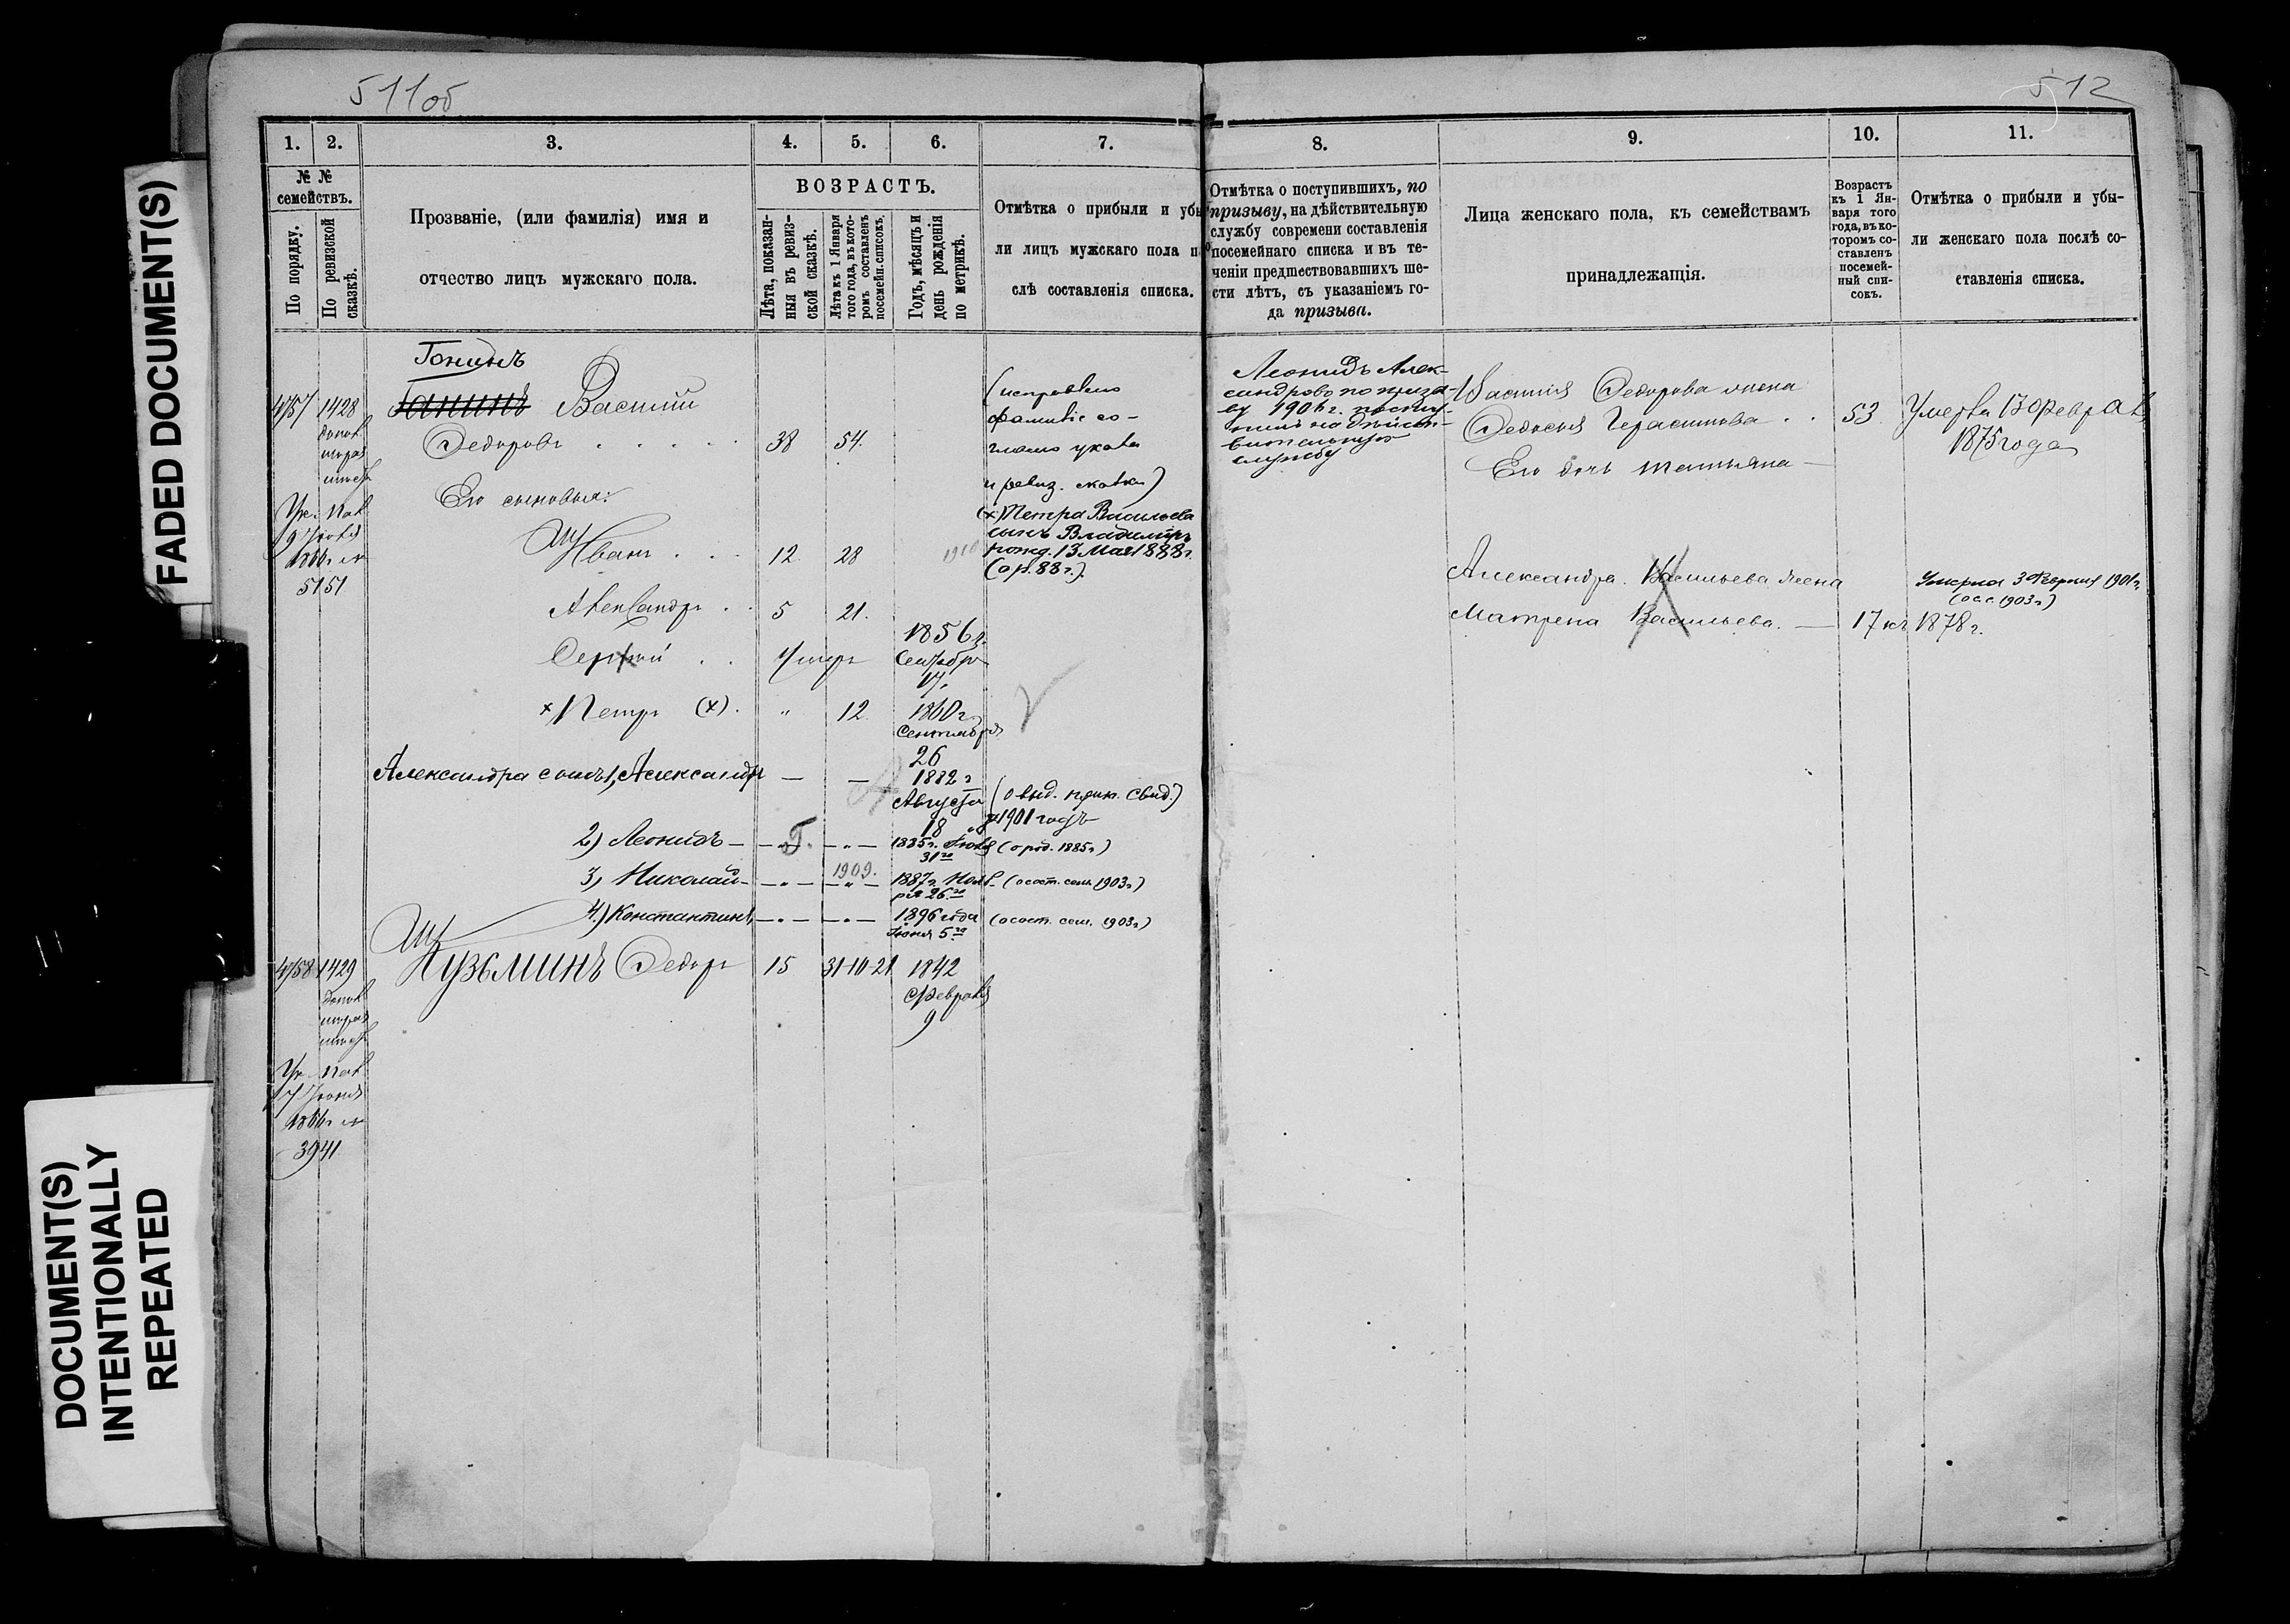 FADED DOCUMENT(S)
DOCUMENT(S)
INTENTIONALLY
REPEATED
511об
512
1.
2.
3.
4.
5.
6.
7.
8.
9.
10.
11.
№ №
семействъ.
По порядку.
По ревизской
сказкѣ.
Прозваніе, (или фамилія) имя и
отчество лицъ мужскаго пола.
ВОЗРАСТЪ.
Лѣта, показан-
ныя въ ревиз-
ской сказкѣ.
Лѣта къ 1 Января
того года, въ кото-
ромъ составленъ
посемейн. списокъ.
Годъ, мѣсяцъ и
день рожденія
по метрикѣ.
Отмѣтка о прибыли и убы
ли лицъ мужскаго пола по
слѣ составленія списка.
Отмѣтка о поступившихъ, по
призыву, на дѣйствительную
службу современи составленія
посемейнаго списка и въ те-
ченіи предшествовавшихъ ше-
сти лѣтъ, съ указаніемъ го-
да призыва.
Лица женскаго пола, къ семействамъ
принадлежащія.
Возрастъ
къ 1 Ян-
варя того
года, въ ко-
торомъ со-
ставленъ
посемей-
ный спи-
сокъ.
Отмѣтка о прибыли и убы-
ли женскаго пола послѣ со-
ставленія списка.
Гонинъ
4757 1428 Ганинъ Василій
Федоровъ 38 54.
(исправлено
фамиліе со-
гласно указа
и ревиз. сказки)
Леонидъ Алек-
сандровъ по призы-
ву 1906 г. посту-
пилъ на дѣйст-
вительную
службу
Василія Федорова жена
Федосья Герасимова 53
Умерла 13 февраля
1875 года
Его дочь Татьяна
Его сыновья:
5151
Иванъ 12. 28 1910
(х) Петра Васильева
сынъ Владиміръ
рожд. 13 Мая 1888 г.
(ор. 88 г.).
Александръ 5 21.
Александра Васильева жена
Матрена Васильева. 17 къ 1878 г.
Умерла 3 Февраля 1901 г.
(о с.с. 1903 г)
Сергѣй умеръ 1856 г.
Сентября
17.
х Петръ (х). " 12. 1860 г.
Сентября
26
Александра сынъ 1, Александръ — — 1882 г
Августа
18
(о выд. прип. Свид.)
1901 годъ
2) Леонидъ — 1885 г. Іюля
31го
(о род. 1885 г)
3) Николай — 1909. 1887 г. Нояб-
ря 26го
(о сост. сем. 1903 г)
4.) Константинъ 1896 года
Іюня 5го
(о сост. сем. 1903 г)
4758 1429 Кузьминъ Федоръ 15 31-10-21 1842
Февраля
9
3941